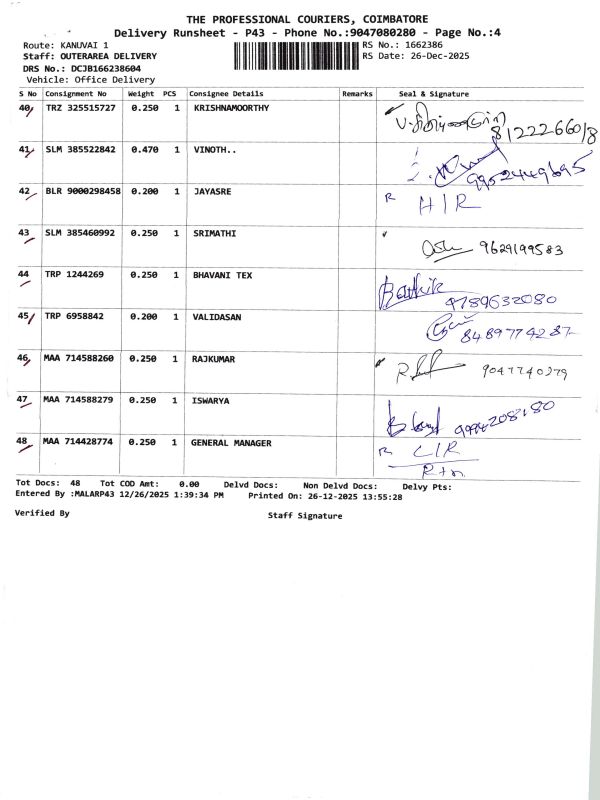 THE PROFESSIONAL COURIERS, COIMBATORE
Delivery Runsheet - P43 - Phone No.:9047080280 - Page No.:4
Route: KANUVAI 1 RS No.: 1662386
Staff: OUTERAREA DELIVERY RS Date: 26-Dec-2025
DRS No.: DCJB166238604
Vehicle: Office Delivery
S No Consignment No Weight PCS Consignee Details Remarks Seal & Signature
40 TRZ 325515727 0.250 1 KRISHNAMOORTHY
8122266018
41 SLM 385522842 0.470 1 VINOTH..
9952449695
42 BLR 9000298458 0.200 1 JAYASRE R H/R
43 SLM 385460992 0.250 1 SRIMATHI 9629199583
44 TRP 1244269 0.250 1 BHAVANI TEX Barthik
9789632080
45 TRP 6958842 0.200 1 VALIDASAN
8489774287
46 MAA 714588260 0.250 1 RAJKUMAR
47 MAA 714588279 0.250 1 ISWARYA
48 MAA 714428774 0.250 1 GENERAL MANAGER R C/R
Rtn
Tot Docs: 48 Tot COD Amt: 0.00 Delvd Docs: Non Delvd Docs: Delvy Pts:
Entered By :MALARP43 12/26/2025 1:39:34 PM Printed On: 26-12-2025 13:55:28
Verified By Staff Signature